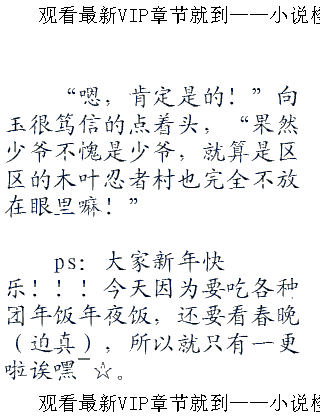 观看最新VIP章节就到——小说检
“嗯，肯定是的！”向
玉很笃信的点着头，“果然
少爷不愧是少爷，就算是区
区的木叶忍者村也完全不放
在眼里嘛！”
ps：大家新年快
乐！！！今天因为要吃各种
团年饭年夜饭，还要看春晚
（迫真），所以就只有一更
啦诶嘿¯☆。
观看最新VIP章节就到——小说检